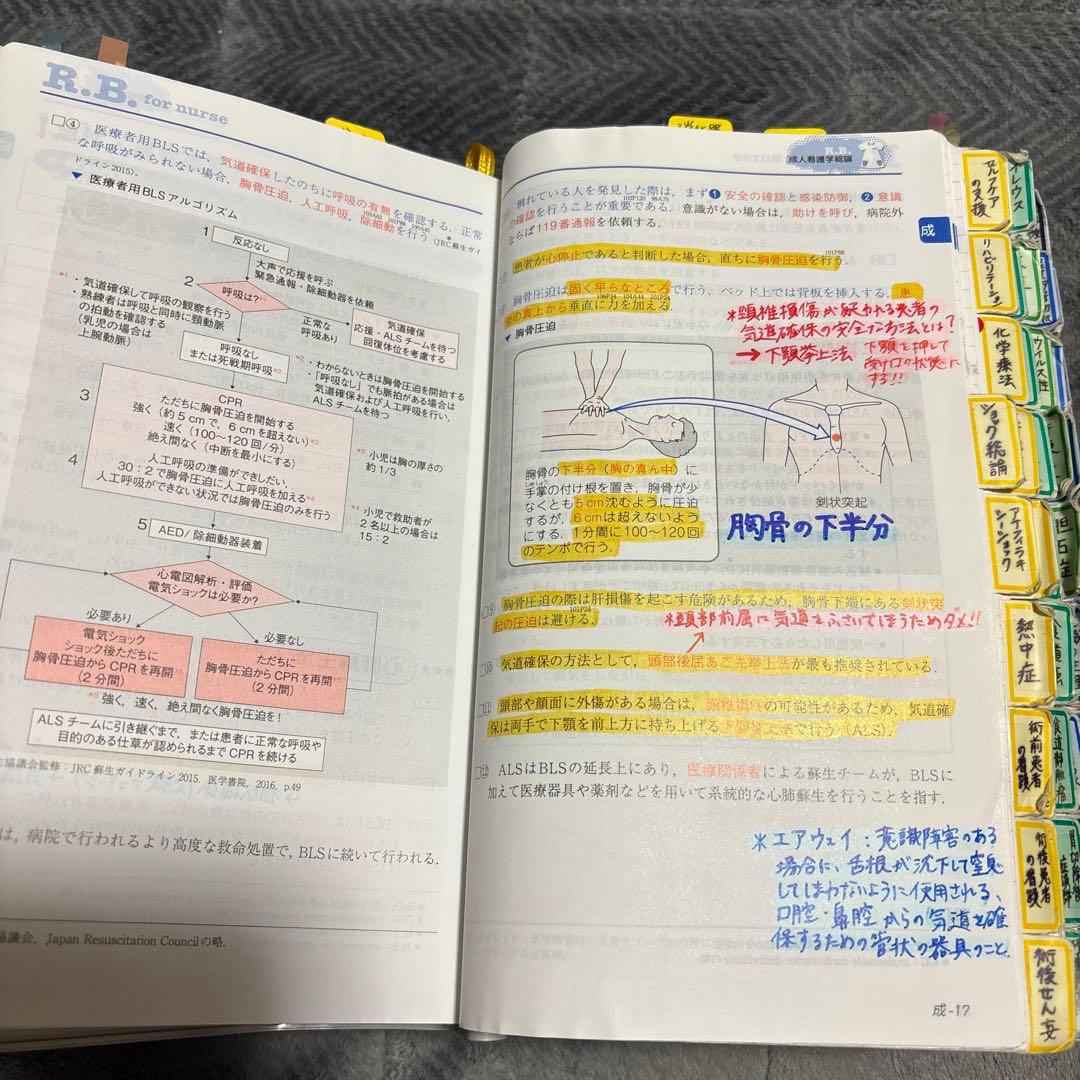 R.B. for nurse
□④ 医療者用BLSでは，気道確保したのちに呼吸の有無を確認する．正常
な呼吸がみられない場合，胸骨圧迫，人工呼吸，除細動を行う（JRC蘇生ガイ
ドライン2015）．
▼ 医療者用BLSアルゴリズム
1 反応なし
大声で応援を呼ぶ
緊急通報・除細動器を依頼
2 呼吸は？*1
*1
・気道確保して呼吸の観察を行う
・熟練者は呼吸と同時に頸動脈
の拍動を確認する
（乳児の場合は
上腕動脈）
正常な
呼吸あり
気道確保
応援・ALSチームを待つ
回復体位を考慮する
呼吸なし
または死戦期呼吸*2
*2
・わからないときは胸骨圧迫を開始する
・「呼吸なし」でも脈拍がある場合は
気道確保および人工呼吸を行い，
ALSチームを待つ
3 CPR
ただちに胸骨圧迫を開始する
強く（約5cmで，6cmを超えない）*3
速く（100〜120回/分）
絶え間なく（中断を最小にする）
*3 小児は胸の厚さの
約1/3
4 人工呼吸の準備ができしだい，
30：2で胸骨圧迫に人工呼吸を加える*4
人工呼吸ができない状況では胸骨圧迫のみを行う
*4 小児で救助者が
2名以上の場合は
15：2
5 AED/除細動器装着
心電図解析・評価
電気ショックは必要か？
必要あり
必要なし
電気ショック
ショック後ただちに
胸骨圧迫からCPRを再開*5
（2分間）
ただちに
胸骨圧迫からCPRを再開*5
（2分間）
*5 強く，速く，絶え間なく胸骨圧迫を！
ALSチームに引き継ぐまで，または患者に正常な呼吸や
目的のある仕草が認められるまでCPRを続ける
協議会監修：JRC蘇生ガイドライン2015．医学書院，2016．p.49
は，病院で行われるより高度な救命処置で，BLSに続いて行われる．
協議会，Japan Resuscitation Councilの略．
R.B.
成人看護学総論
成
倒れている人を発見した際は，まず❶安全の確認と感染防御，❷意識
の確認を行うことが重要である．意識がない場合は，助けを呼び，病院外
ならば119番通報を依頼する．
患者が心停止であると判断した場合，直ちに胸骨圧迫を行う．
胸骨圧迫は固く平らなところで行う．ベッド上では背板を挿入する．患
者の真上から垂直に力を加える．
▼ 胸骨圧迫
*頸椎損傷が疑われる患者の
気道確保の安全な方法とは？
→下顎挙上法 下顎を押して
受け口の状態に
する!!
胸骨の下半分（胸の真ん中）に
手掌の付け根を置き，胸骨が少
なくとも5cm沈むように圧迫
するが，6cmは超えないよう
にする．1分間に100〜120回
のテンポで行う．
剣状突起
胸骨の下半分
□⑨ 胸骨圧迫の際は肝損傷を起こす危険があるため，胸骨下端にある剣状突
起の圧迫は避ける．
*頭部前屈は気道をふさいでしまうためダメ!!
□⑩ 気道確保の方法として，頭部後屈あご先挙上法が最も推奨されている．
□⑪ 頭部や顔面に外傷がある場合は，頸椎損傷の可能性があるため，気道確
保は両手で下顎を前上方に持ち上げる下顎挙上法で行う（ALS）．
□⑫ ALSはBLSの延長上にあり，医療関係者による蘇生チームが，BLSに
加えて医療器具や薬剤などを用いて系統的な心肺蘇生を行うことを指す．
*エアウェイ：意識障害のある
場合に、舌根が沈下して窒息
してしまわないように使用される、
口腔・鼻腔からの気道を確
保するための管状の器具のこと.
成-17
セルフケア
の支援
リハビリテーション
化学療法
ショック総論
アナフィラキ
シーショック
熱中症
術前患者
の看護
術後患者
の看護
術後せん妄
イレウス
ウイルス性
胆石症